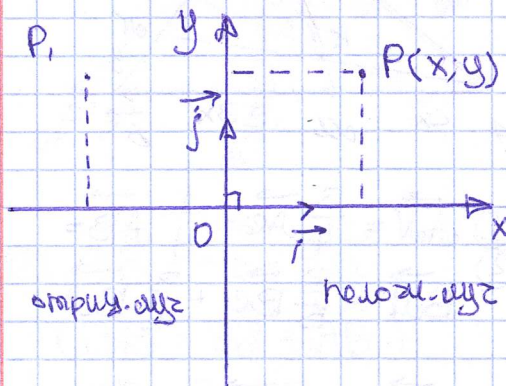 P₁
y
P(x;y)
j
O
i
x
отриц. луч
полож. луч